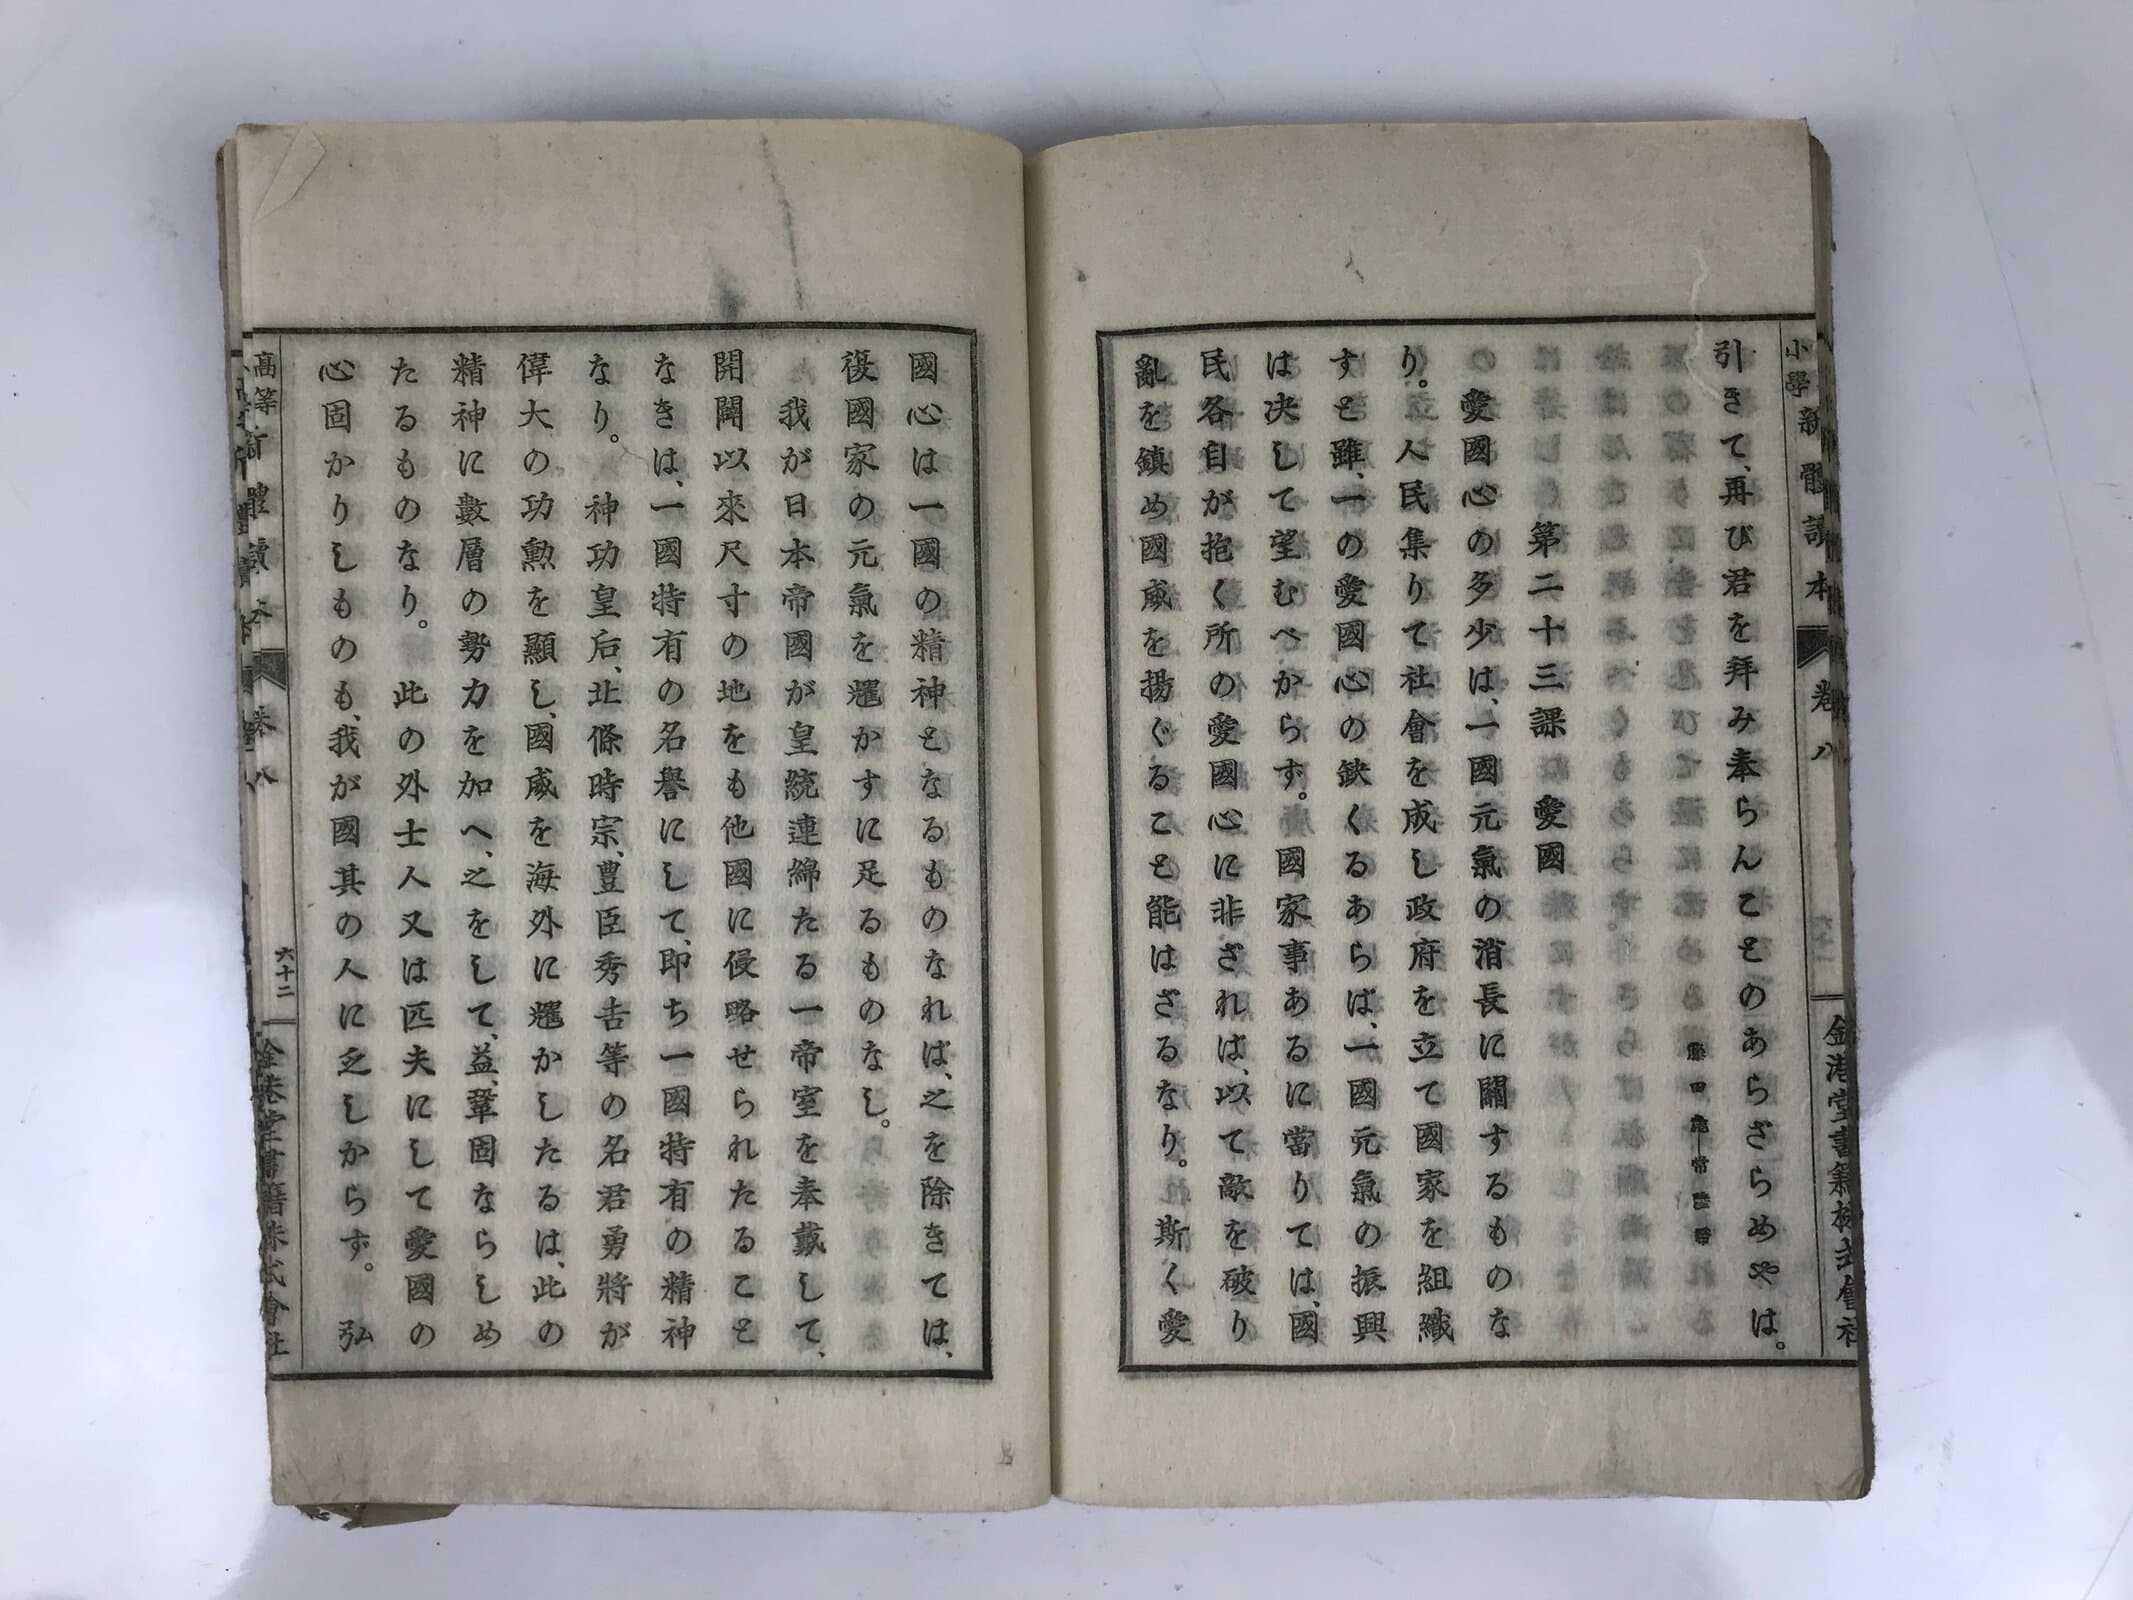 小學新體讀本 卷八
金港堂書籍株式會社
引きて、再び君を拜み奉らんことのあらざらめやは。
藤田彪―常陸帶
第二十三課 愛國
愛國心の多少は、一國元氣の消長に關するものな
り。人民集りて社會を成し政府を立て國家を組織
すと雖、一の愛國心の缺くるあらば、一國元氣の振興
は決して望むべからず。國家事あるに當りては、國
民各自が抱く所の愛國心に非ざれば、以て敵を破り
亂を鎮め國威を揚ぐること能はざるなり。斯く愛
國心は一國の精神となるものなれば、之を除きては、
復國家の元氣を耀かすに足るものなし。
我が日本帝國が皇統連綿たる一帝室を奉戴して、
開闢以來尺寸の地をも他國に侵略せられたること
なきは、一國特有の名譽にして、即ち一國特有の精神
なり。 神功皇后、北條時宗、豊臣秀吉等の名君勇將が
偉大の功勲を顯し、國威を海外に耀かしたるは、此の
精神に數層の勢力を加へ、之をして、益、鞏固ならしめ
たるものなり。 此の外士人又は匹夫にして愛國の
心固かりしものも、我が國其の人に乏しからず。 弘
高等新體讀本 卷八
六十二
金港堂書籍株式會社